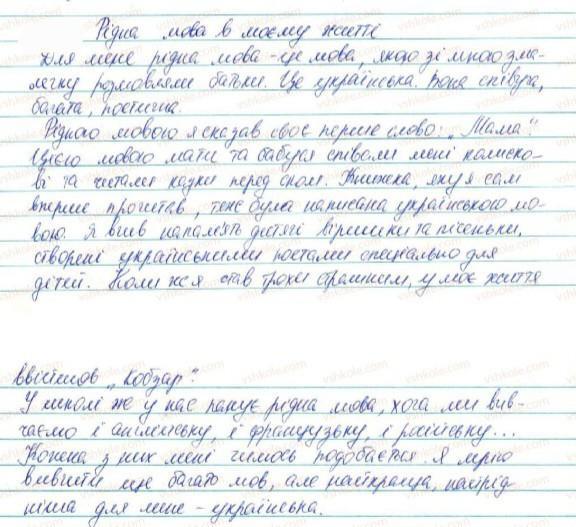 Рідна мова в моєму житті
Для мене рідна мова - це мова, якою зі мною зма-
лечку розмовляли батьки. Це українська. Вона співуча,
багата, поетична.
Рідною мовою я сказав своє перше слово: „Мама".
Цією мовою мати та бабуся співали мені колиско-
ві та читали казки перед сном. Книжка, яку я сам
вперше прочитав, теж була написана українською мо-
вою. Я вчив напам'ять дитячі віршики та пісеньки,
створені українськими поетами спеціально для
дітей. Коли ж я став трохи старшим, у моє життя
ввійшов „Кобзар".
У школі же у нас панує рідна мова, хоча ми вив-
чаємо і англійську, і французьку, і російську...
Кожна з них мені чимось подобається. Я мрію
вивчити ще багато мов, але найкраща, найрід
ніша для мене - українська.
vshkole.com